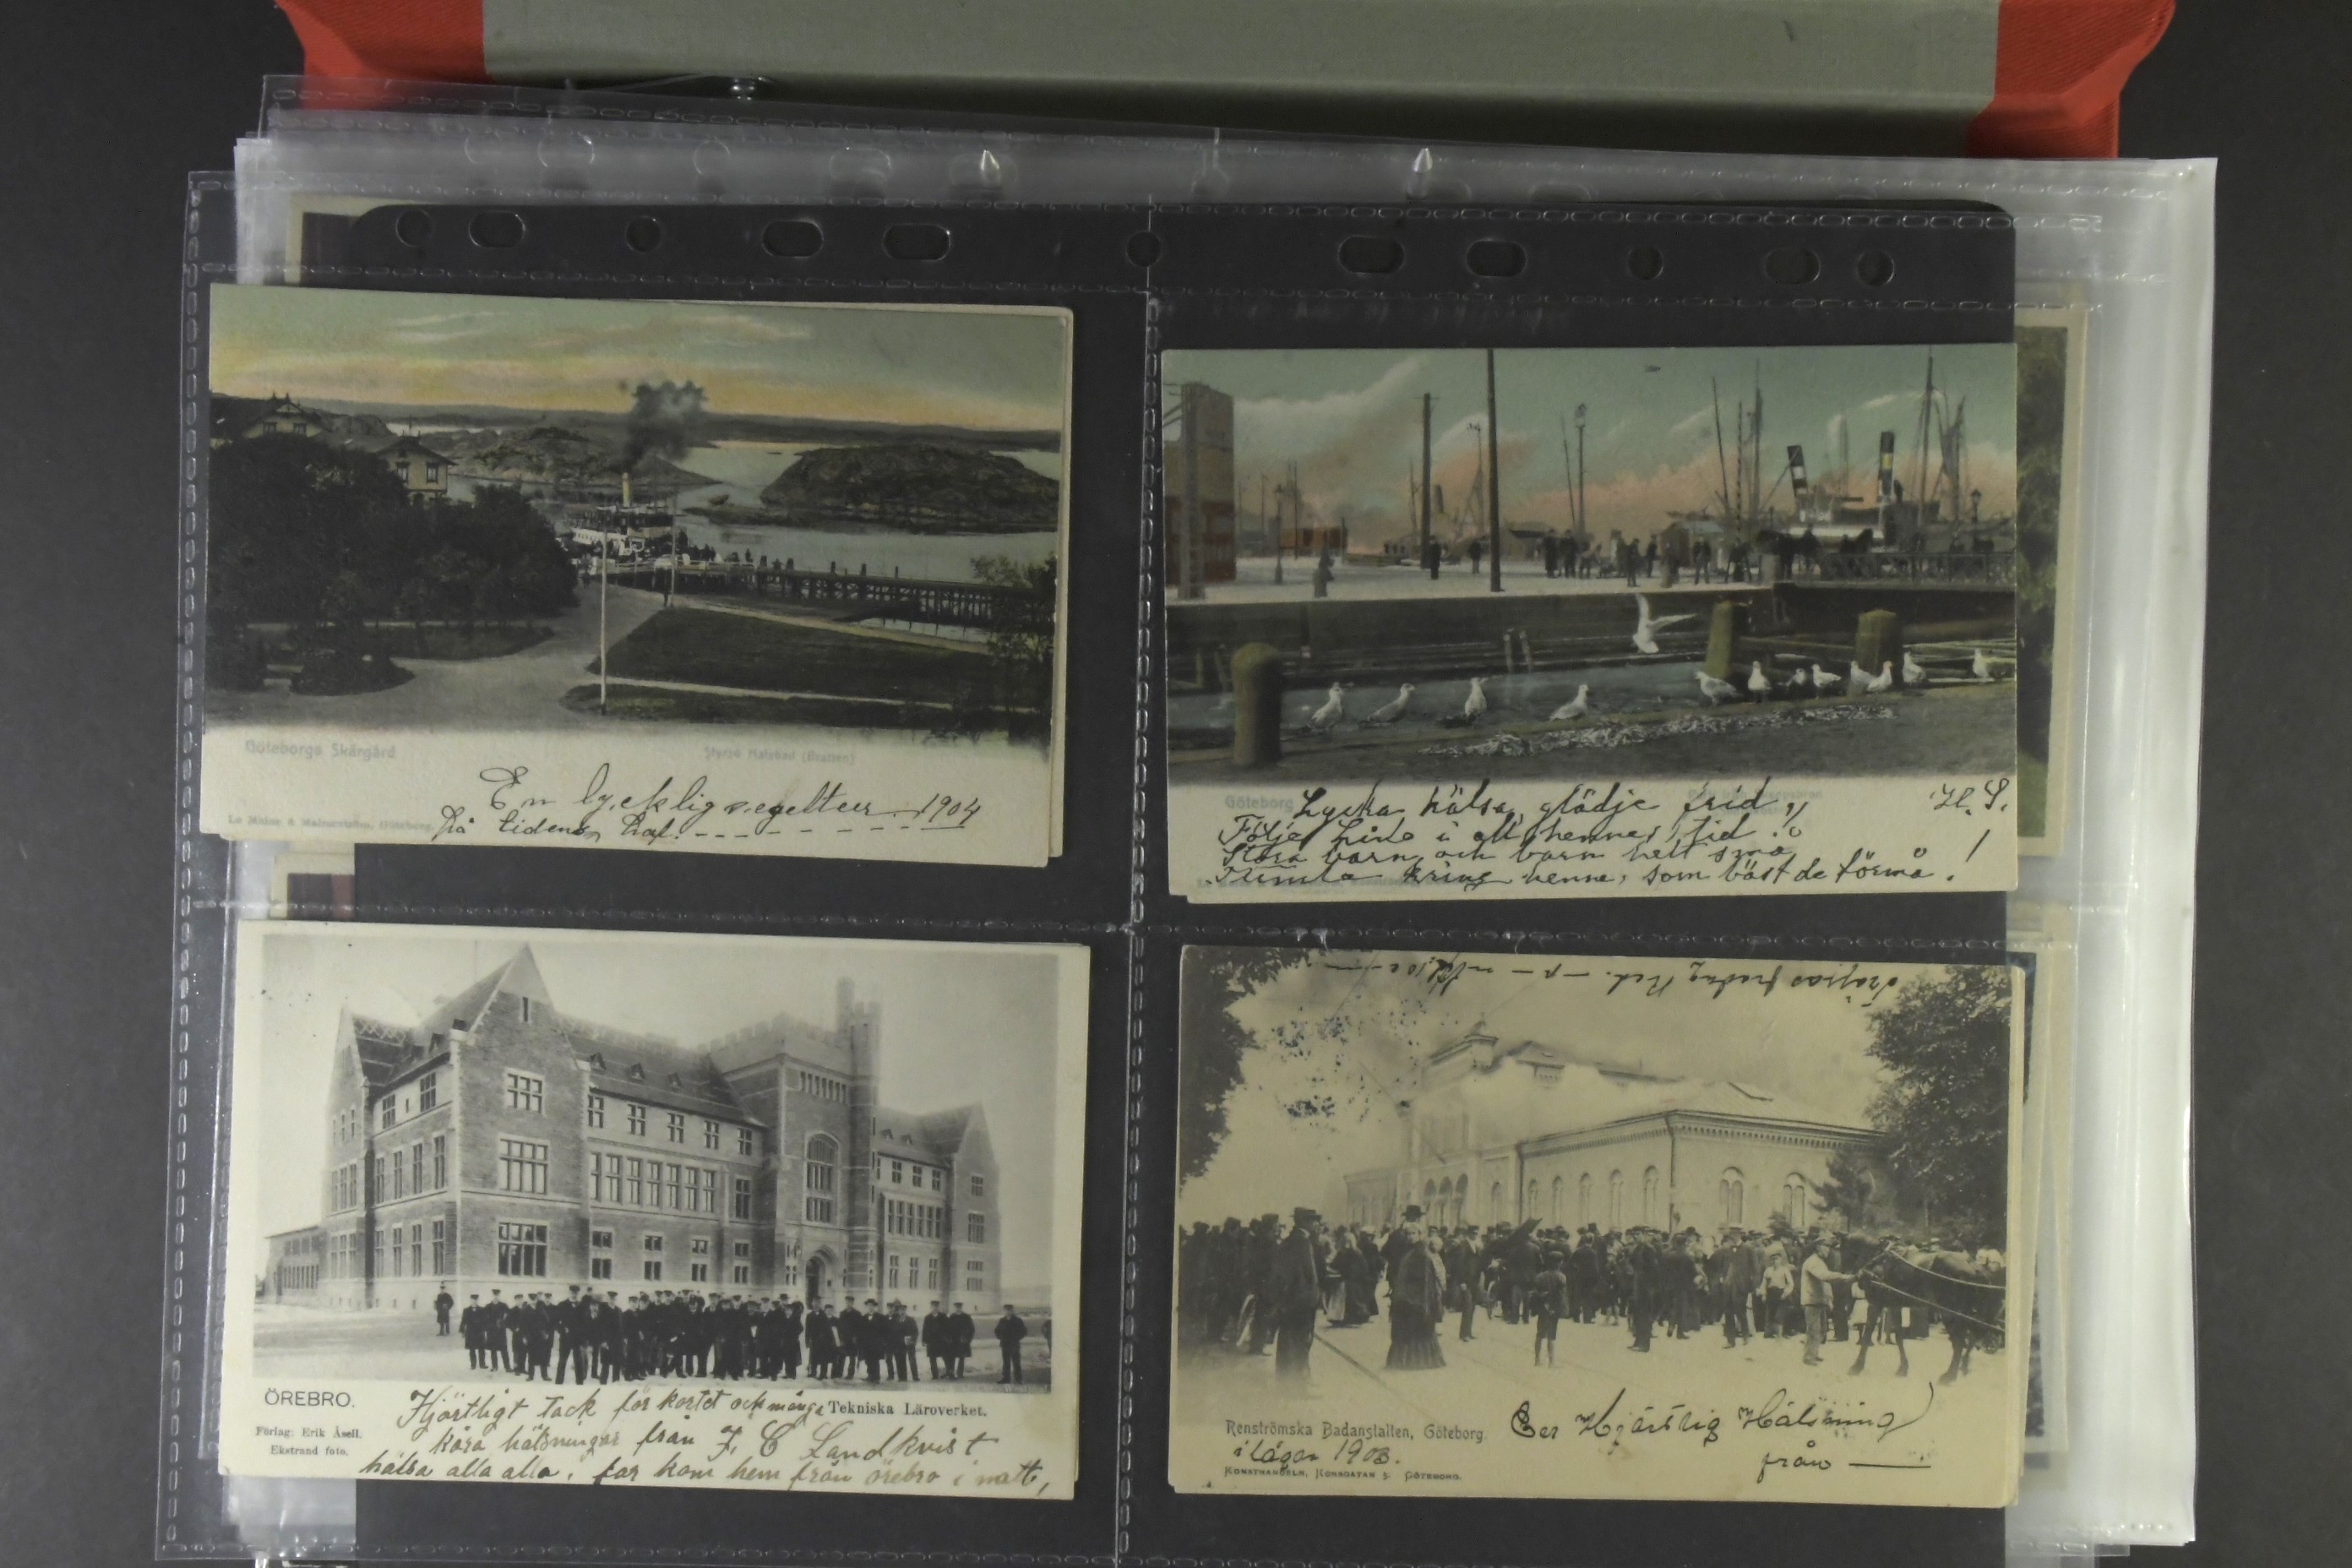 Göteborgs Skärgård
Styrsö Hafsbad (Bratten)
En lycklig seglteur 1904
På tidens haf.
Le Moine & Malmeström, Göteborg.
Göteborg
Lycka, hälsa, glädje frid,
H. S.
Följe Lina i all hennes tid.
Stora barn och barn helt små
Stimla kring henne, som bäst de förmå!
ÖREBRO.
Tekniska Läroverket.
Förlag: Erik Åsell.
Ekstrand foto.
Hjärtligt tack för kortet och många
kära hälsningar från J, C Landkvist
hälsa alla alla. far kom hem från örebro i natt,
Renströmska Badanstalten, Göteborg.
i läger 1903.
Konsthandeln, Korsgatan 5. Göteborg.
Hjärtlig Hälsning
från